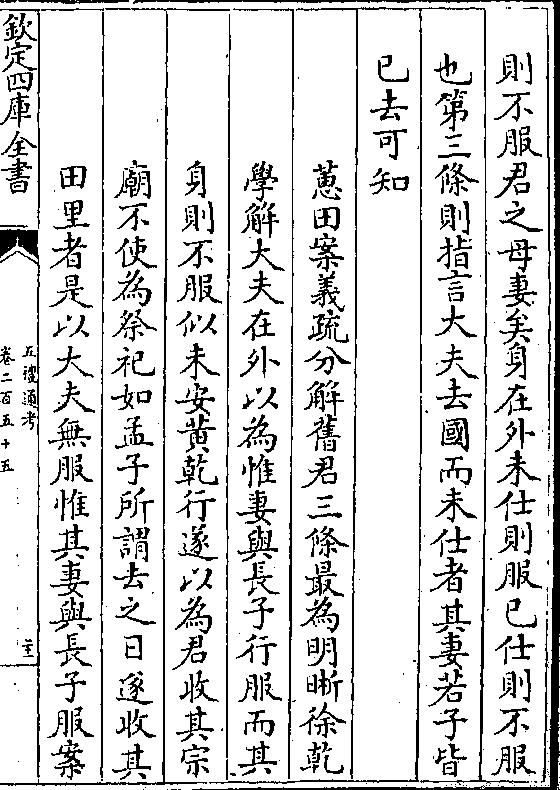 則不服君之母妻矣身在外未仕則服已仕則不服
也第三條則指言大夫去國而未仕者其妻若子皆
已去可知
蕙田案義疏分解舊君三條最為明晰徐乾
學解大夫在外以為惟妻與長子行服而其
身則不服似未安黃乾行遂以為君收其宗
廟不使為祭祀如孟子所謂去之日遂收其
田里者是以大夫無服惟其妻與長子服案
欽定四庫全書
五禮通考
卷二百五十五
二十三